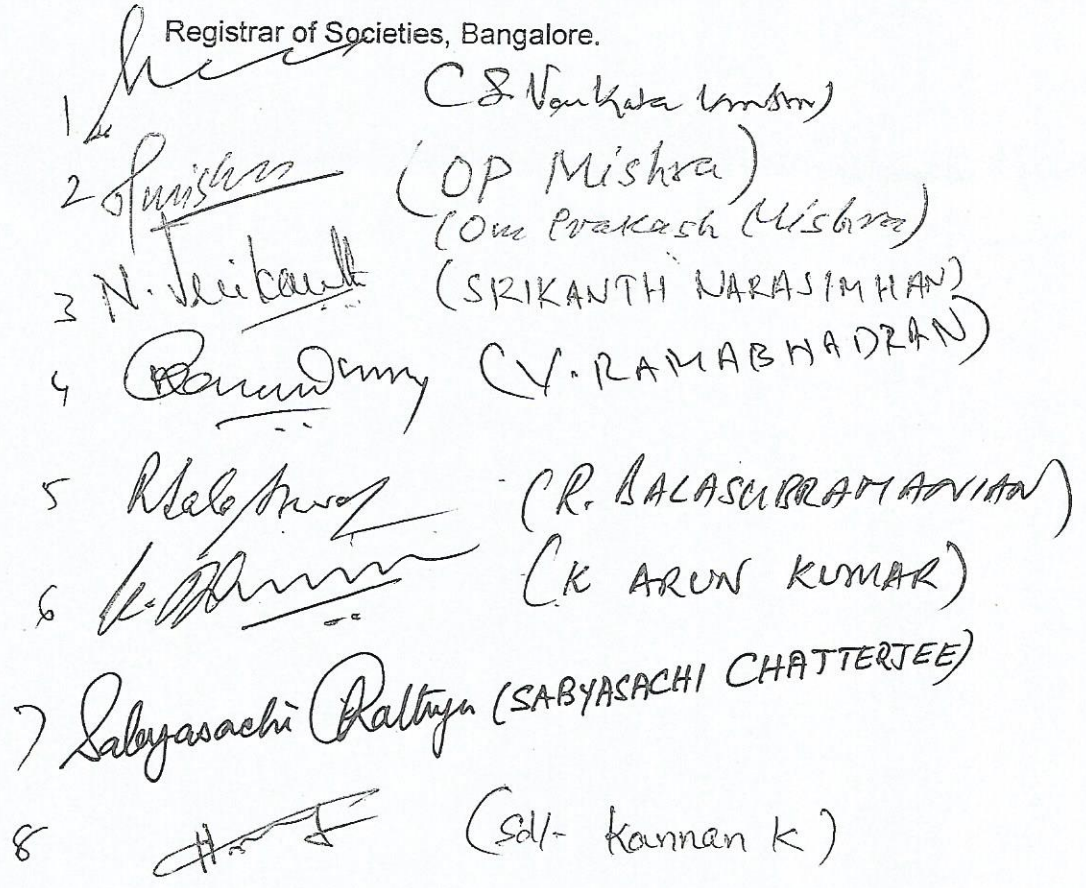 Registrar of Societies, Bangalore.
1 (S. Venkata
2 (OP Mishra)
(Om Prakash Mishra)
3 N. Srikanth (SRIKANTH NARASIMHAN)
4 (V. RAMABHADRAN)
5 (R. BALASUBRAMANIAN)
6 (K ARUN KUMAR)
7) Sabyasachi Chatterjee (SABYASACHI CHATTERJEE)
8 (Sd/- Kannan K)